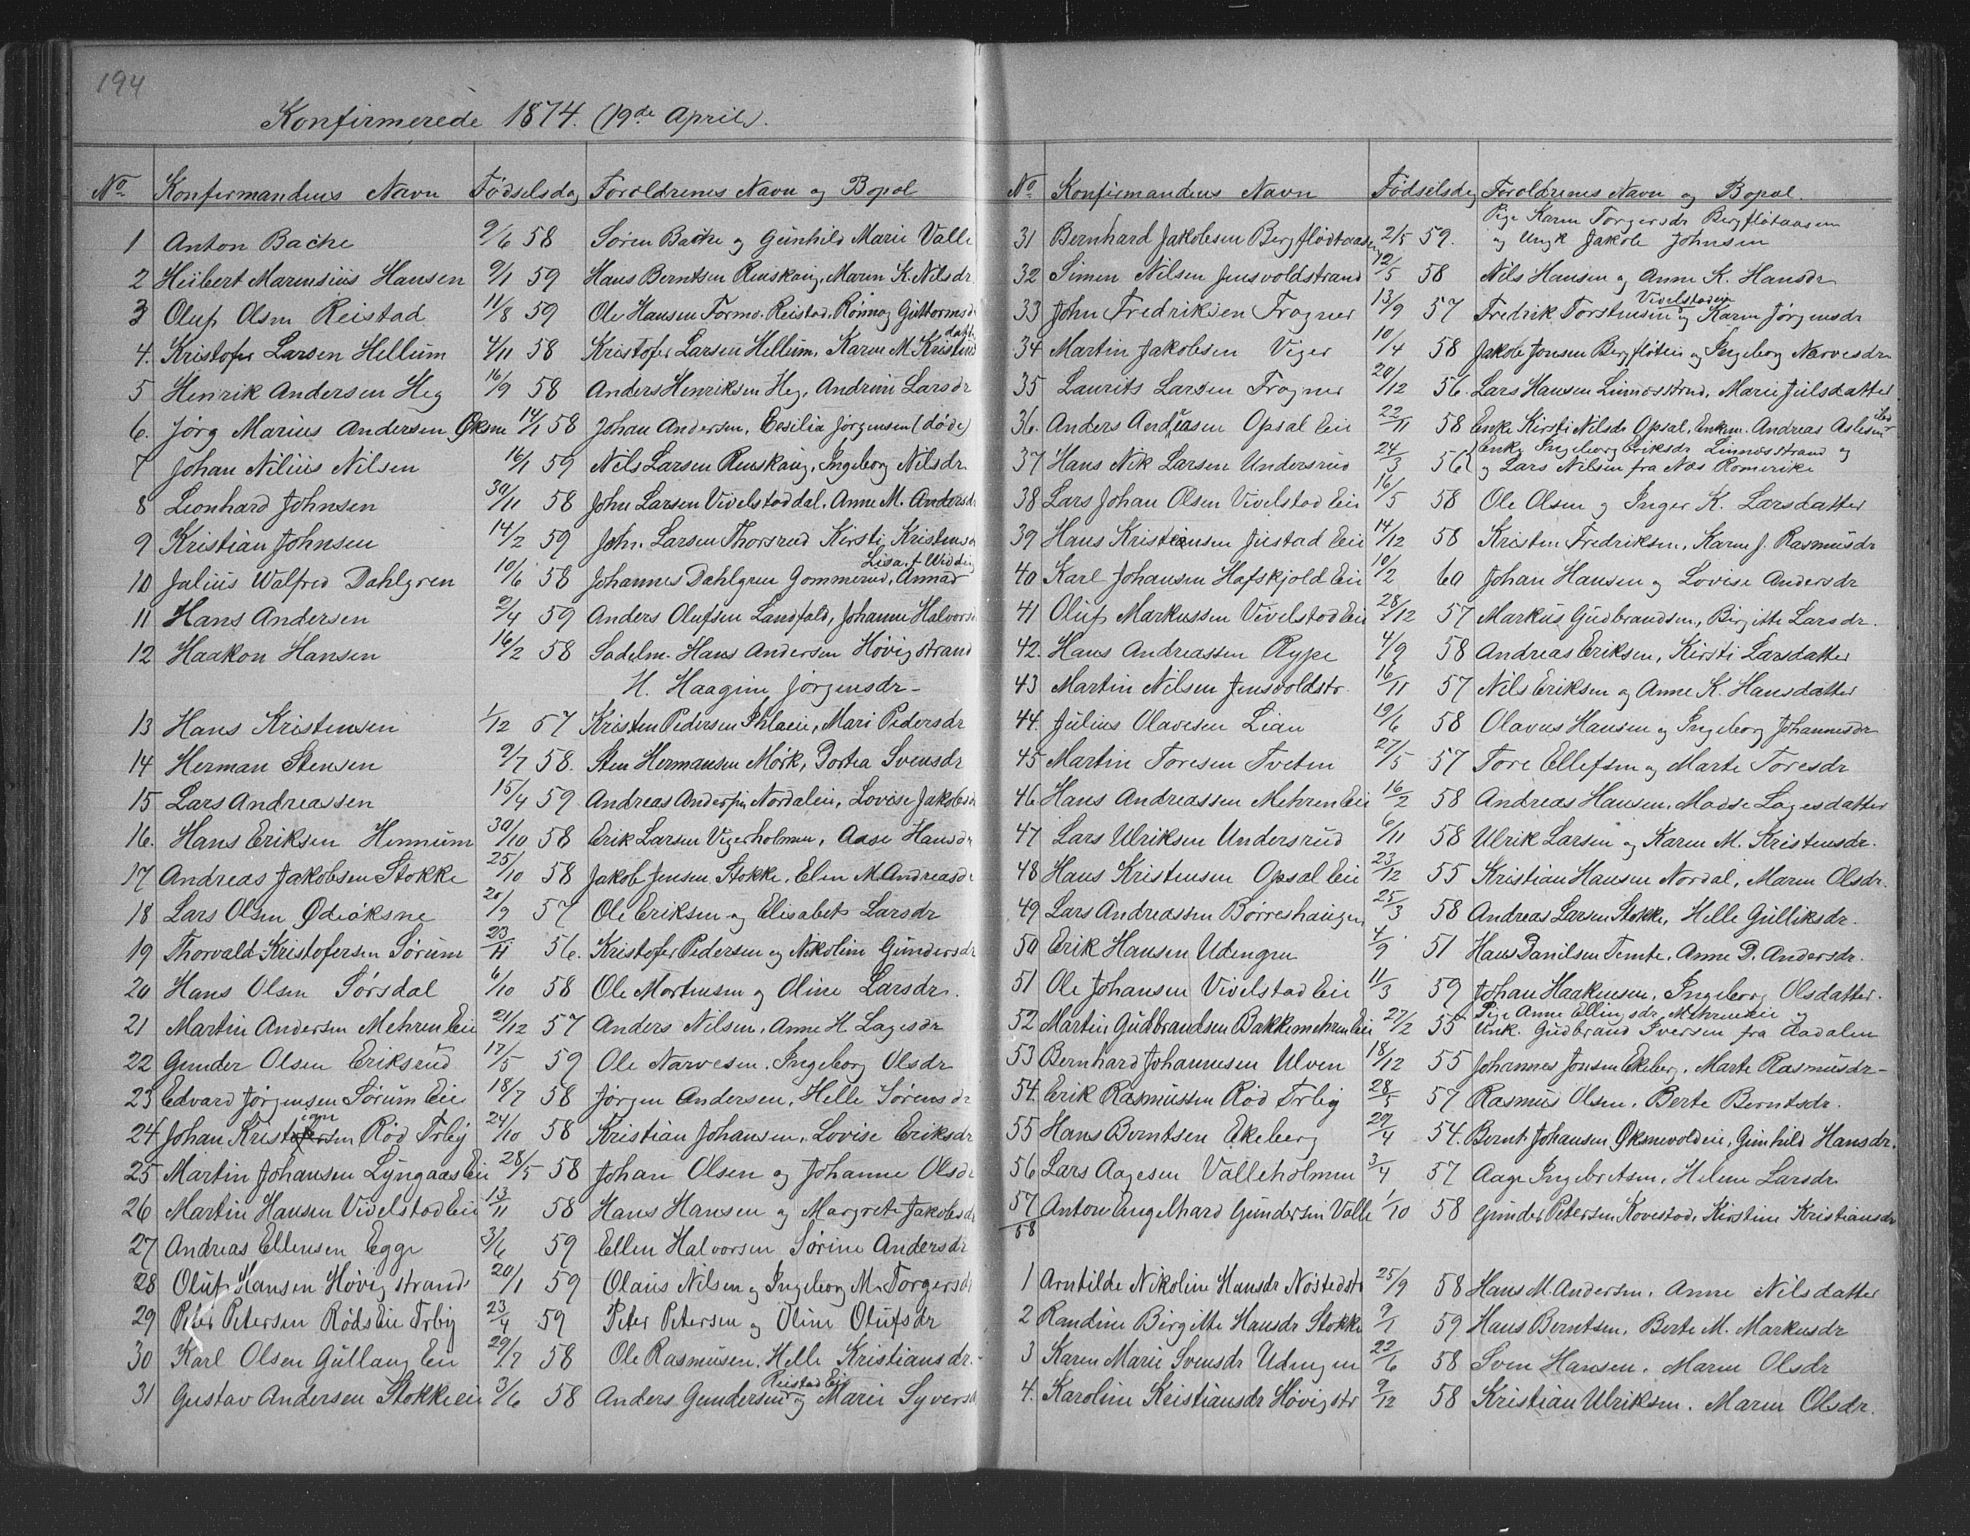 194
Konfirmerede 1874. (19de April).
No Konfirmandens Navn Fødselsdag Foroldrenes Navn og Bopol
1 Anton Bache 9/6 58 Søren Bache og Gunhild Marie Valle
2 Heibert Marensius Hansen 9/1 59 Hans Berntsen Renskaug, Maren K. Nilsdr
3 Oluf Olsen Reistad 11/8 59 Ole Hansen Formo. Reistad, Rønnog Guttormsd
datter
4. Kristofer Larsen Hellum 4/11 58 Kristofer Larsen Hellum, Karen M. Kristens
5 Henrik Andersen Heg 16/9 58 Anders Henriksen Heg, Andrine Larsdr
6. Jørg Marius Andersen Øksne 14/1 58 Johan Andersen, Cesilia Jørgensen (døde)
7 Johan Nilius Nilsen 16/1 59 Nils Larsen Renskaug, Ingeborg Nilsdr
8 Leonhard Johnsen 30/11 58 John Larsen Vivelstaddal, Anne M. Andersd
9 Kristian Johnsen 14/2 59 John Larsen Thorsrud Kirsti Kristensd
Lisa f Widding
10 Julius Walfred Dahlgren 10/6 58 Johannes Dahlgren Gommerud, Anna
11 Hans Andersen 2/4 59 Anders Olufsen Landfald, Johanne Halvors
12 Haakon Hansen 16/2 58 Sadelm. Hans Andersen Høvigstrand
H. Haagine Jørgensdr
13 Hans Kristensen 1/12 57 Kristen Pedersen, Mari Pedersdr
14 Herman Stensen 9/7 58. Sten Hermansen Mørk, Dortea Svensdr
15 Lars Andreassen 15/4 59. Andreas Andersen Nordaleie, Lovise Jakobsd
16. Hans Eriksen Hennum 30/10 58 Erik Larsen Vigerholmen, Aase Hansdr
17 Andreas Jakobsen Stokke 25/10 58 Jakob Jensen Stokke, Elen M. Andreasd
18 Lars Olsen Ødeøksne 20/9 57 Ole Eriksen og Elisabet Larsdr
19 Thorvald Kristofersen Sørum 23/11 56. Kristofer Pedersen og Nikoline Gundersdr
20 Hans Olsen Sørsdal 6/10 58 Ole Mortensen og Oline Larsdr.
21 Martin Andersen Mehren Eie 21/12 57 Anders Nilsen, Anne H. Lagesdr
22 Gunder Olsen Eriksrud 17/5 59 Ole Narvesen. Ingeborg Olsdr
23 Edvard Jørgensen Sørum Eie 18/7 58 Jørgen Andersen, Helle Sørensdr
ian
24 Johan Kristofersen Rød Frby 24/10 58 Kristian Johansen, Lovise Eriksdr
25 Martin Johansen Lyngaas Eie 28/5 58 Johan Olsen og Johanne Olsdr
26 Martin Hansen Vivelstad Eie 13/11 58 Hans Hansen og Margrete Jakobsd
27 Andreas Ellensen Egge 3/6 59 Ellen Halvorsen Sørine Andersdr
28 Oluf Hansen Høvigstrand 20/1 59 Olaus Nilsen og Ingeborg M. Torgersd
29 Peter Petersen Røds Eie Frby 23/4 59 Peter Petersen og Oline Olufsdr
30 Karl Olsen Gullaug Eie 29/7 58 Ole Rasmusen. Helle Kristiansdr.
Reistad Eie
31 Gustav Andersen Stokkeeie 3/6 58 Anders Gundersen og Marie Syversd
No Konfirmandens Navn Fødselsdg Foroldrenes Navn og Bopol.
Pige Karen Torgersdr Bergflötaasen
31 Bernhard Jakobsen Bergflødtaasen 2/5 59. og Ungk Jakob Johnsen
32 Simen Nilsen Jensvoldstrand 12/5 58 Nils Hansen og Anne K. Hansdr
Vivelstaden
33 John Fredriksen Frogner 13/9 57 Fredrik Torstensen og Karen Jørgensdr
34 Martin Jakobsen Viger 10/4 58 Jakob Jonsen Bergfløteie og Ingeborg Narvesdr
35 Laurits Larsen Frogner 20/12 56. Lars Hansen Linnesstrand, Marie Julsdatter
36. Anders Andreasen Opsal Eie 22/11 58 Enke Kirsti Nilsdr Opsal, Enkm. Andreas Aslesen ibd
37 Hans Nik Larsen Undersrud 24/3 56 Enke Ingeborg Eriksdr Linnesstrand og
og Lars Nilsen fra Næs Romerike
38 Lars Johan Olsen Vivelstad Eie 16/5 58 Ole Olsen og Inger K. Larsdatter
39 Hans Kristensen Justad Eie 14/12 58 Kristen Fredriksen, Karen J. Rasmusdr
40 Karl Johansen Hafskjold Eie 10/2 60 Johan Hansen og Lovise Andersdr
41 Oluf Markussen Vivelstad Eie 28/12 57 Markus Gudbrandsen, Birgitte Larsdr.
42. Hans Andreassen Rype 4/9 58 Andreas Eriksen, Kirsti Larsdatter
43 Martin Nilsen Jensvoldstr. 16/11 57 Nils Eriksen og Anne K. Hansdatter
44. Julius Olavesen Lian 19/6 58 Olavus Hansen og Ingeborg Johannesdr
45 Martin Toresen Tveten 27/5 57 Tore Ellefsen og Marte Toresdr
46 Hans Andreassen Mehren Eie 16/2 58 Andreas Hansen. Madse Lagesdatter
47 Lars Ulriksen Undersrud 6/11 58 Ulrik Larsen og Karen M. Kristensdr.
48 Hans Kristensen Opsal Eie 23/12 55 Kristian Hansen Nordal, Maren Olsdr.
49 Lars Andreassen Børreshaugen 25/3 58 Andreas Larsen Stokke, Helle Gulliksdr.
50 Erik Hansen Udengen 4/9 51 Hans Danilsen Temte, Anne D. Andersdr.
51 Ole Johansen Vivelstad Eie 11/3 59 Johan Haakensen, Ingeborg Olsdatter.
Pige Anne Ellingsdr, Mehreneie
52 Martin Gudbrandsen Bakkemehren Eie 27/2 55 Unk. Gudbrand Iversen fra Aadalen
53 Bernhard Johannesen Ulven 18/12 55 Johannes Jonsen Ekeberg, Marte Rasmusdr
54. Erik Rasmussen Rød Frby 28/5 57 Rasmus Olsen, Berte Berntsdr.
55 Hans Berntsen Ekeberg 29/4 54. Bernt Johansen Øksnevoldeie, Gunhild Hansdr.
56 Lars Aagesen Valleholmen 3/4 57 Aage Ingebretsen, Helene Larsdr
57 Anton Engelhard Gundersen Valle 1/10 58 Gunder Petersen Kovestad, Kirstine Kristiansdr
58
1 Arntilde Nikoline Hansdr Nøstedstr 25/9 58 Hans M. Andersen, Anne Nilsdatter
2 Randine Birgitte Hansdr Stokke 9/1 59 Hans Berntsen, Berte M. Markusdr
3 Karen Marie Svensdr Udengen 22/6 58 Sven Hansen. Maren Olsdr
4. Karoline Kristiansdr Høvigstr 9/12 58 Kristian Ulriksen. Maren Olsdr.